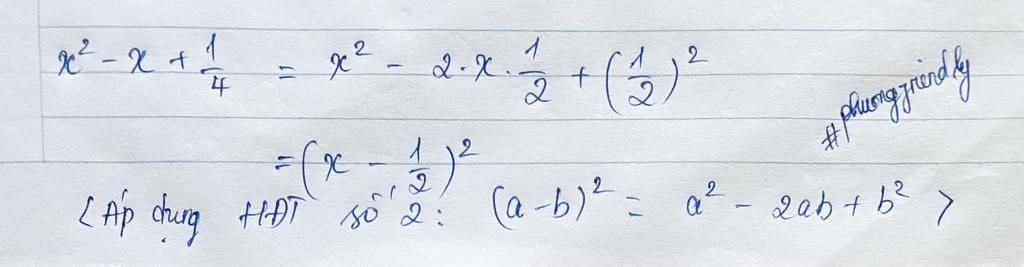 x² - x + 1/4 = x² - 2·x·1/2 + (1/2)²
#phuongfriendly
= (x - 1/2)²
<Áp dụng HĐT số 2: (a-b)² = a² - 2ab + b²>